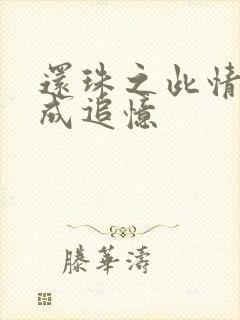 還珠之此情
成追憶
滕華濤